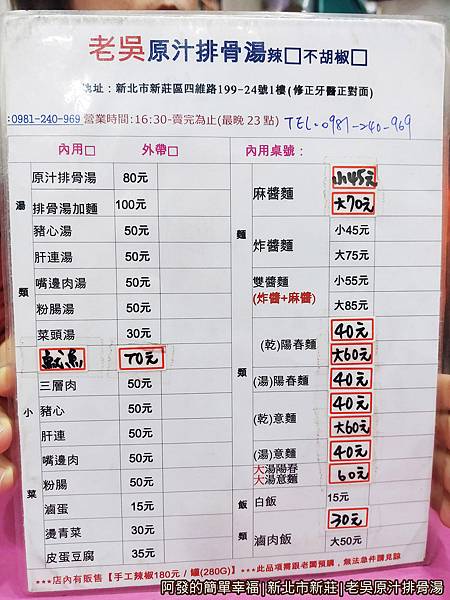 老吳原汁排骨湯辣□不胡椒□
地址：新北市新莊區四維路199-24號1樓(修正牙醫正對面)
:0981-240-969 營業時間:16:30-賣完為止(最晚23點) TEL.0981-240-969
內用□ 外帶□
湯類
原汁排骨湯 80元
排骨湯加麵 100元
豬心湯 50元
肝連湯 50元
嘴邊肉湯 50元
粉腸湯 50元
菜頭湯 30元
魷魚 70元
小菜
三層肉 50元
豬心 50元
肝連 50元
嘴邊肉 50元
粉腸 50元
滷蛋 15元
燙青菜 30元
皮蛋豆腐 35元
內用桌號：
麵類
麻醬麵 小45元
大70元
炸醬麵 小45元
大75元
雙醬麵 小55元
(炸醬+麻醬) 大85元
(乾)陽春麵 40元
大60元
(湯)陽春麵 40元
(乾)意麵 40元
大60元
(湯)意麵 40元
大湯陽春
大湯意麵 60元
飯類
白飯 15元
滷肉飯 30元
大50元
***店內有販售【手工辣椒180元 / 罐(280G)】***此品項需跟老闆預購，無法急件請見諒
阿發的簡單幸福|新北市新莊|老吳原汁排骨湯